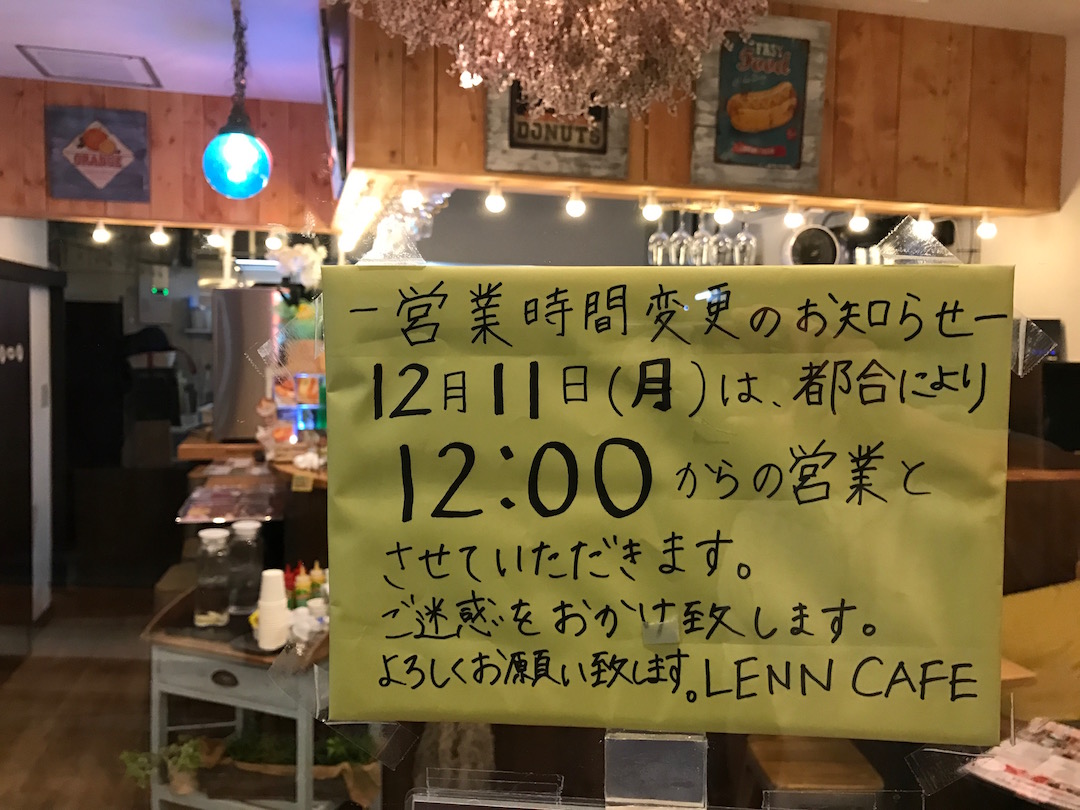 ORANGE
DONUTS
FAST
Food
－営業時間変更のお知らせ－
12月11日(月)は、都合により
12:00からの営業と
させていただきます。
ご迷惑をおかけ致します。
よろしくお願い致します。LENN CAFE